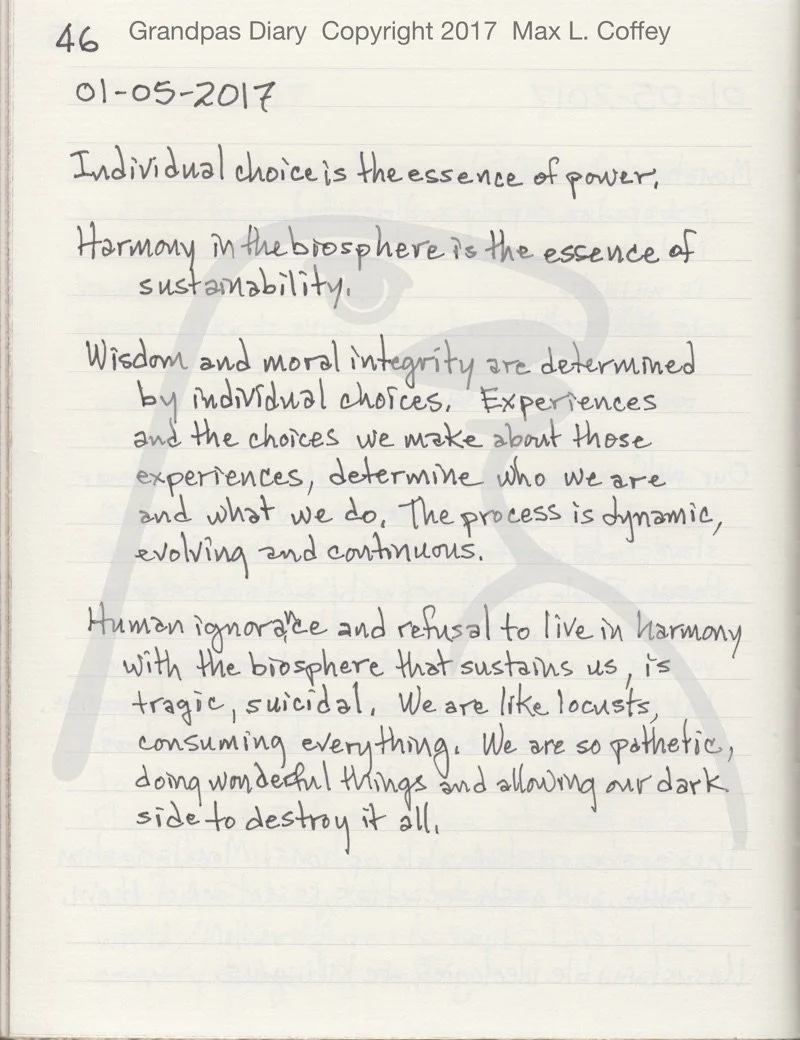 46 Grandpas Diary Copyright 2017 Max L. Coffey
01-05-2017
Individual choice is the essence of power.
Harmony in the biosphere is the essence of
sustainability.
Wisdom and moral integrity are determined
by individual choices. Experiences
and the choices we make about those
experiences, determine who we are
and what we do. The process is dynamic,
evolving and continuous.
Human ignorance and refusal to live in harmony
with the biosphere that sustains us, is
tragic, suicidal. We are like locusts,
consuming everything. We are so pathetic,
doing wonderful things and allowing our dark
side to destroy it all.